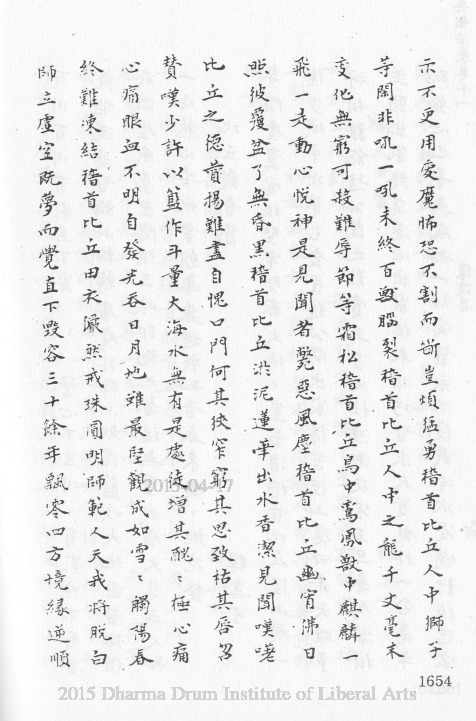 示不更用處魔怖恐不割而斷豈須猛勇稽首比丘人中獅子
等閑非吼一吼未終百獸腦裂稽首比丘人中之龍千丈毫末
變化無窮可殺難辱節等霜松稽首比丘鳥中鸞鳳獸中麒麟一
飛一走動心悅神是見聞者斃惡風塵稽首比丘幽宵沸日
照彼覆盆了無昏黑稽首比丘淤泥蓮華出水香潔見聞嘆嗟
比丘之德贊揚難盡自愧口門何其狹窄窮其思致枯其唇舌
贊嘆少許以籃作斗量大海水無有是處徒增其醜醜極心痛
心痛眼血不明自發光吞日月地雖最堅觀成如雪觸陽春
終難凍結稽首比丘田衣儼然戒珠圓明師範人天我將脫白
師立虛空既夢而覺直下毀容三十餘年飄零四方境緣逆順
2015-04-07
1654
2015 Dharma Drum Institute of Liberal Arts